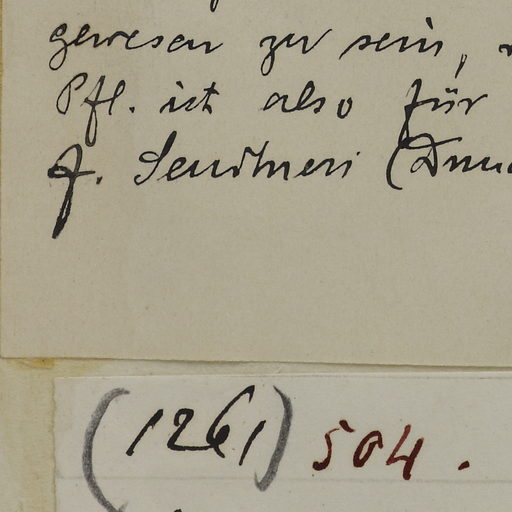 gewesen zu sein,
Pfl. ist also für
f. Sendtneri
(1261) 504.